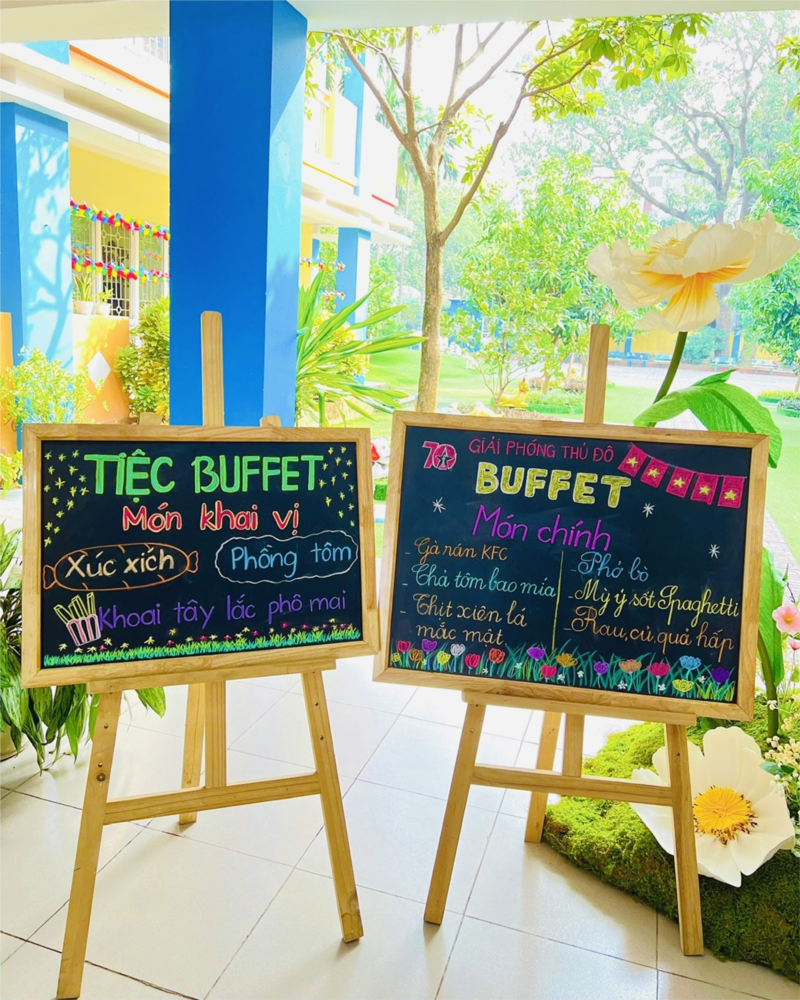 TIỆC BUFFET
Món khai vị
Xúc xích
Phồng tôm
Khoai tây lắc phô mai
70
GIẢI PHÓNG THỦ ĐÔ
BUFFET
Món chính
- Gà rán KFC
- Chả tôm bao mía
- Thịt xiên lá
mắc mật
- Phở bò
- Mỳ ý sốt Spaghetti
- Rau, củ, quả hấp